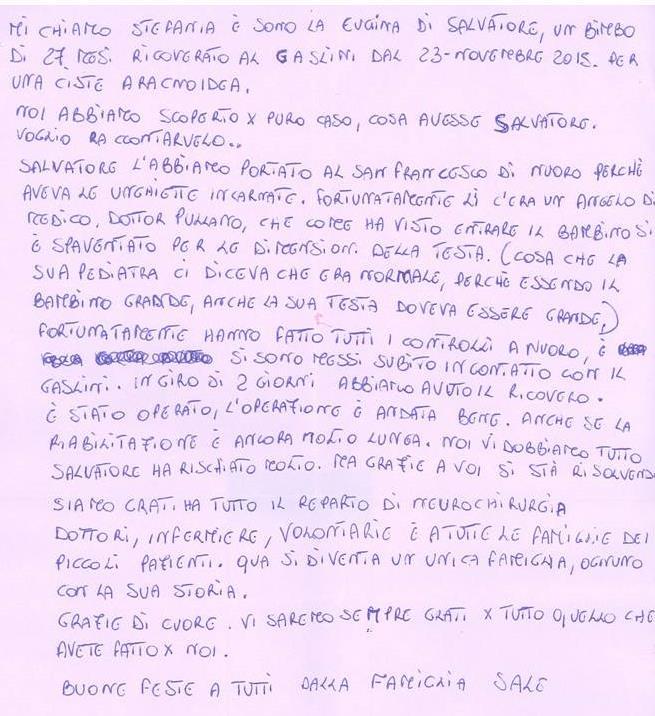 MI CHIAMO STEFANIA È SONO LA CUGINA DI SALVATORE, UN BIMBO
DI 27 MESI. RICOVERATO AL GASLINI DAL 23-NOVEMBRE 2015. PER
UNA CISTE ARACNOIDEA.
NOI ABBIAMO SCOPERTO X PURO CASO, COSA AVESSE SALVATORE.
VOGLIO RACCONTARVELO..
SALVATORE L'ABBIAMO PORTATO AL SAN FRANCESCO DI NUORO PERCHÈ
AVEVA LE UNGHIETTE INCARNATE. FORTUNATAMENTE LÌ C'ERA UN ANGELO DI
MEDICO, DOTTOR PULLANO, CHE COME HA VISTO ENTRARE IL BAMBINO SI
È SPAVENTATO PER LE DIMENSIONI DELLA TESTA. (COSA CHE LA
SUA PEDIATRA CI DICEVA CHE ERA NORMALE, PERCHÈ ESSENDO IL
BAMBINO GRANDE, ANCHE LA SUA TESTA DOVEVA ESSERE GRANDE,)
FORTUNATAMENTE HANNO FATTO TUTTI I CONTROLLI A NUORO, È
SI SONO MESSI SUBITO IN CONTATTO CON IL
GASLINI. IN GIRO DI 2 GIORNI ABBIAMO AVUTO IL RICOVERO.
È STATO OPERATO, L'OPERAZIONE È ANDATA BENE. ANCHE SE LA
RIABILITAZIONE È ANCORA MOLTO LUNGA. NOI VI DOBBIAMO TUTTO
SALVATORE HA RISCHIATO MOLTO. MA GRAZIE A VOI SI STÀ RISOLVENDO
SIAMO GRATI HA TUTTO IL REPARTO DI NEUROCHIRURGIA
DOTTORI, INFERMIERE, VOLONTARIE È A TUTTE LE FAMIGLIE DEI
PICCOLI PAZIENTI. QUA SI DIVENTA UN UNICA FAMIGLIA, OGNUNO
CON LA SUA STORIA.
GRAZIE DI CUORE. VI SAREMO SEMPRE GRATI X TUTTO QUELLO CHE
AVETE FATTO X NOI.
BUONE FESTE A TUTTI DALLA FAMIGLIA SALE